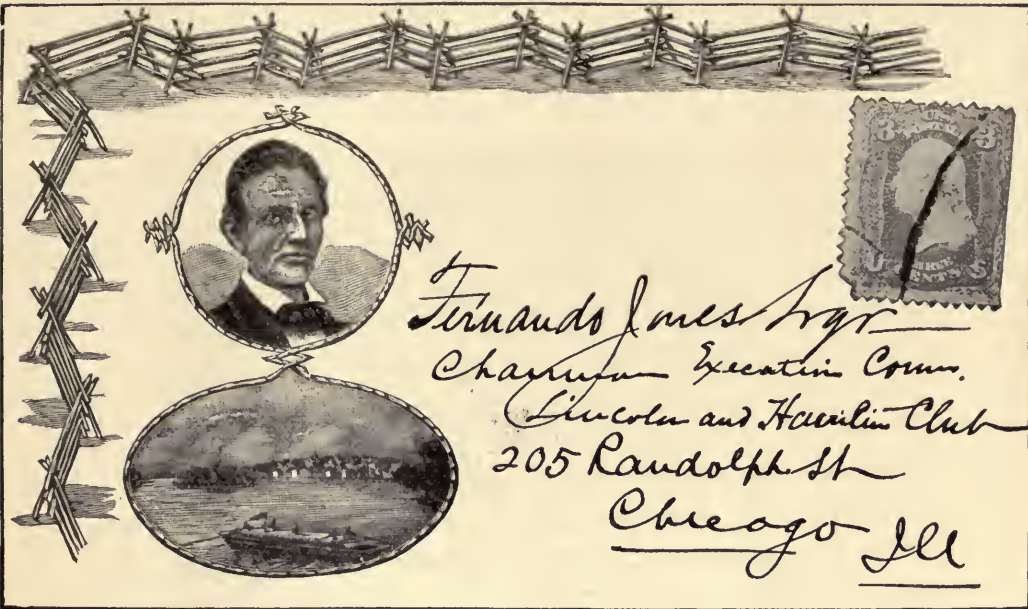 3 U.S. 3
THREE
CENTS
Fernando Jones Esqr
Chairman Executive Comm.
Lincoln and Hamlin Club
205 Randolph St
Chicago
Ill